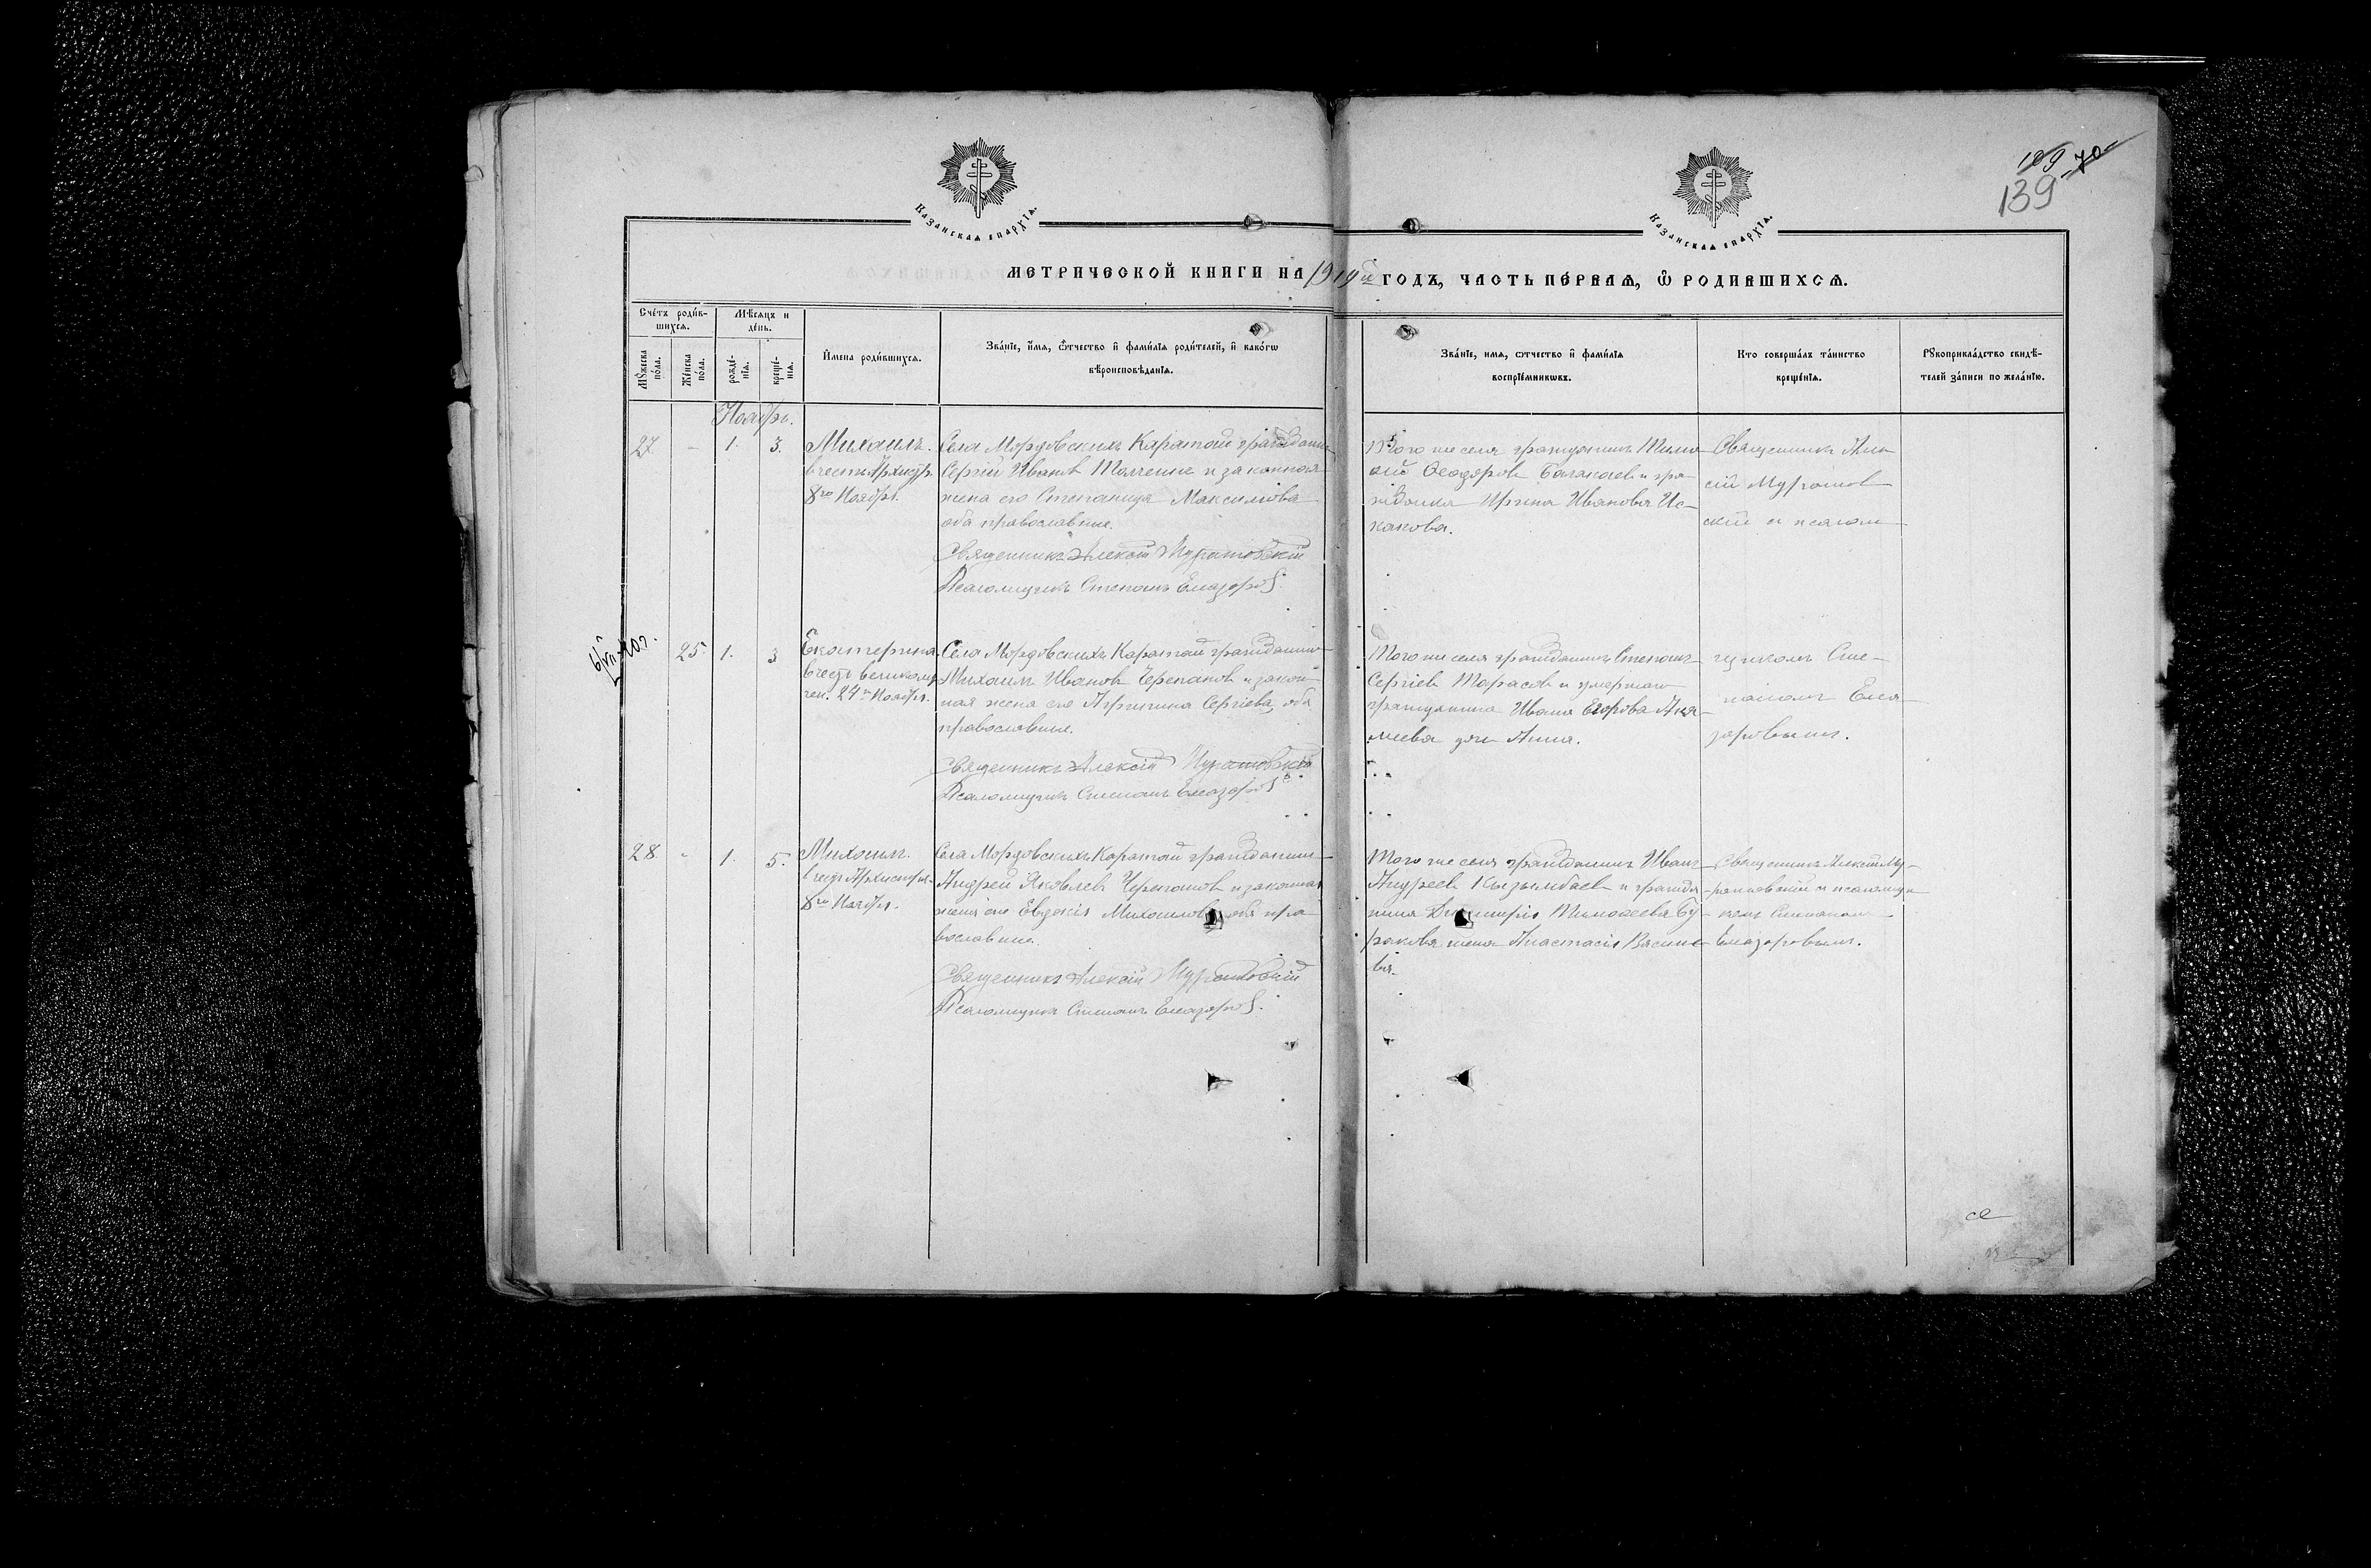 189 70
139
Казанская епархїѧ.
Казанская епархїѧ.
Метрической книги на 1919й годъ, часть первая, ѡ родившихся.
Счетъ родив-
шихся.
Мужеска
пола.
Женска
пола.
Мѣсяцъ и
день.
рожде-
нїя.
креще-
нїя.
Имена родившихся.
Званїе, имя, ѡтчество и фамилїя родителей, и какогѡ
вѣроисповѣданїя.
Званїе, имя, ѡтчество и фамилїя
воспрїемникѡвъ.
Кто совершалъ таинство
крещенїя.
Рукоприкладство свидѣ-
телей записи по желанїю.
Ноябрь.
27 - 1. 3.
Михаилъ.
въ честь Архистр.
8го Ноября.
Села Мордовскихъ Каратай гражданинъ
Сергѣй Иванов и законная
жена его Степанида Максимова
оба православные.
Священникъ Алексій Муратовскій
Псаломщикъ Степанъ Елазаров.
Того же села гражданинъ
Ѳеодоров Балакаев и гра-
жданка Ирина Иванова Ис-
какова.
Священникъ Алек-
сій Муратов-
скій и псалом-
6/VII-40г.
25. 1. 3
Екатерина
въ честь великому-
чен. 24го Ноября.
Села Мордовскихъ Каратай гражданинъ
Михаилъ Иванов Черепанов и закон-
ная жена его Агрипина Сергіева, оба
православные.
Священникъ Алексій Муратовскій
Псаломщикъ Степанъ Елазаров
Того же села гражданинъ Степанъ
Сергіев Тарасов и умершаго
гражданина Ивана Егорова
дочь Анна.
щикомъ Сте-
паномъ Елеа-
заровымъ.
28 - 1. 5.
Михаилъ.
въ честь Архистрат.
8го Ноября.
Села Мордовскихъ Каратай гражданинъ
Андрей Яковлев Черепанов и законная
жена его Евдокія Михаилова, оба пра-
вославные.
Священникъ Алексій Муратовскій
Псаломщикъ Степанъ Елазаров.
Того же села гражданинъ Иванъ
Андреев Кызылбаев и гражда-
нина Димитрія Тимоѳеева Бу-
ракова жена Анастасія Василье-
ва.
Священникъ Алексій Му-
ратовскій и псаломщи-
комъ Степаномъ
Елазаровымъ.